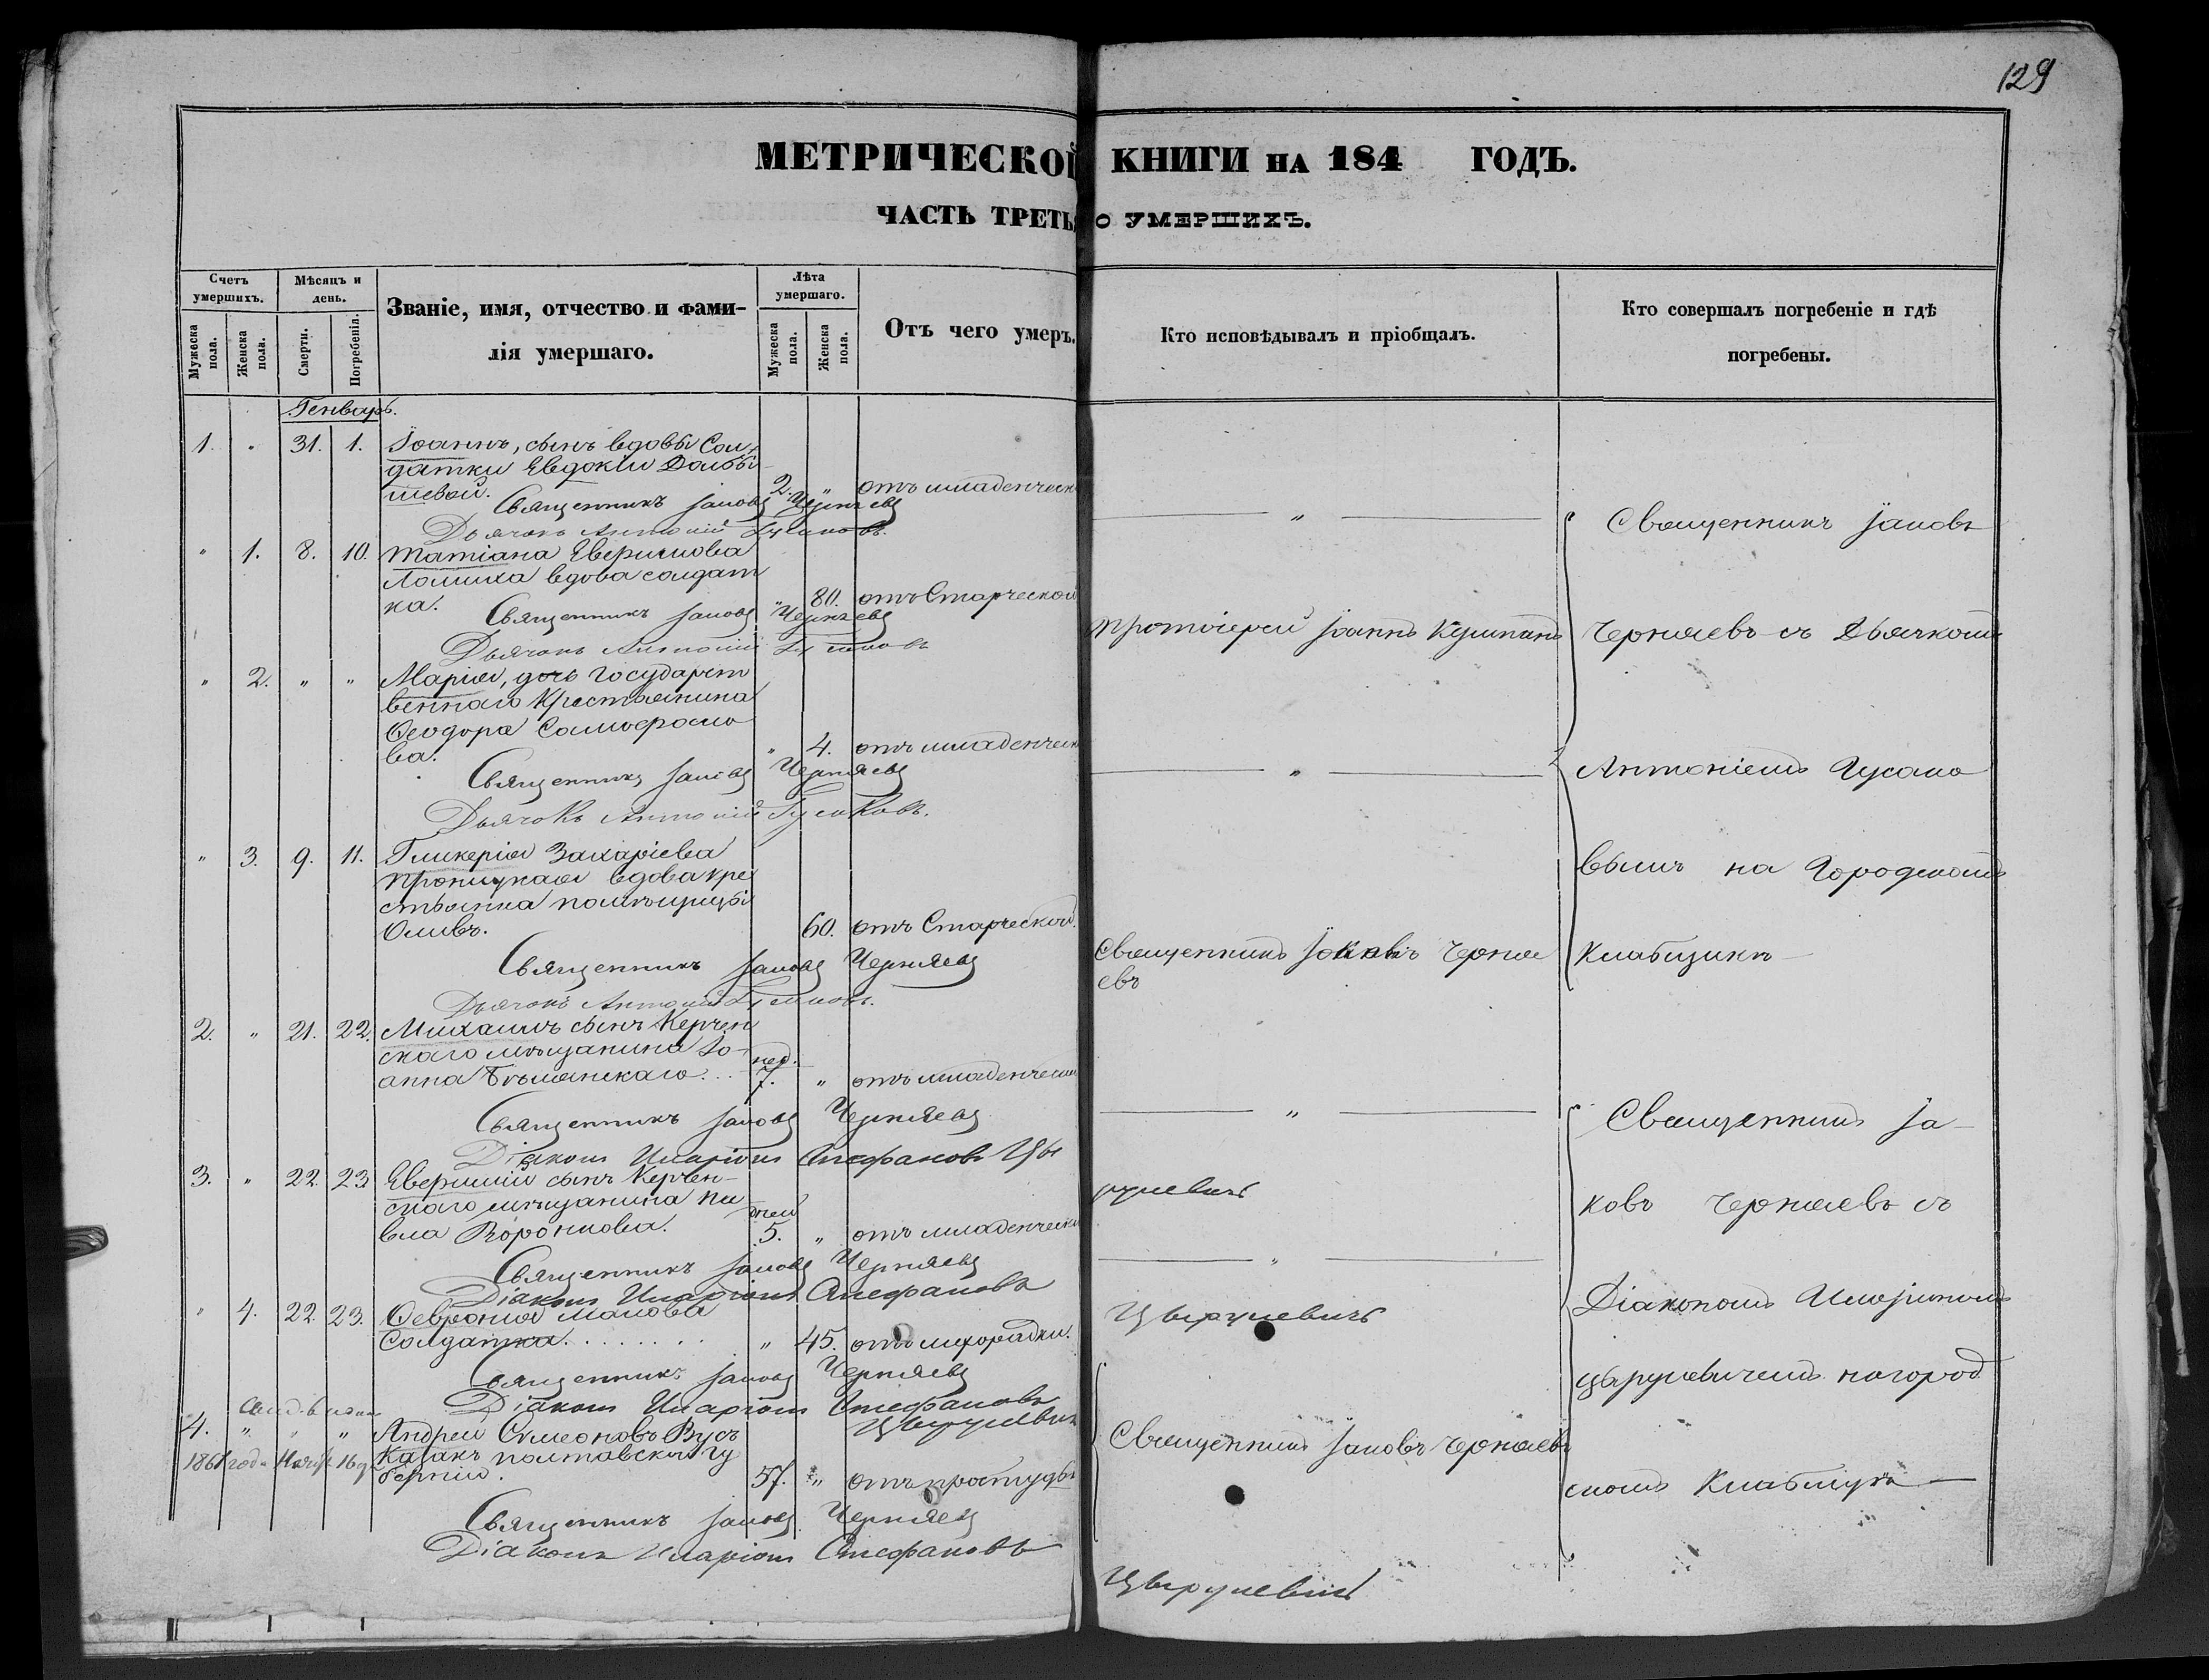 129
МЕТРИЧЕСКОЙ КНИГИ НА 184 ГОДЪ.
ЧАСТЬ ТРЕТЬ О УМЕРШИХЪ.
Счетъ умершихъ.
Мужеска пола.
Женска пола.
Мѣсяцъ и день.
Смерти.
Погребенія.
Званіе, имя, отчество и фами-
лія умершаго.
Лѣта умершаго.
Мужеска пола.
Женска пола.
Отъ чего умеръ.
Кто исповѣдывалъ и пріобщалъ.
Кто совершалъ погребеніе и гдѣ
погребены.
Генварь.
1. " 31. 1. Іоаннъ, сынъ вдовы Сол-
датки Евдокіи
шевой. 2. " отъ младенческ
Священникъ Іаковъ Черняевъ
Дьячокъ Антоній Гусаковъ.
" 1. 8. 10. Татіана
вдова солдат
ка. " 80. отъ Старческой
Священникъ Іаковъ Черняевъ
Протоіерей Іоаннъ
Дьячокъ Антоній Гусаковъ
" 2. " " Марія, дочь Государст
веннаго Крестьянина
Ѳеодора
ва. " 4. отъ младенческ
Священникъ Іаковъ Черняевъ
Дьячокъ Антоній Гусаковъ.
" 3. 9. 11. Гликерія Захаріева
вдова кре
стьянка помѣщицы
60. отъ Старческой.
Священникъ Іаковъ Черняевъ
Священникъ Іаковъ Черня
евъ
Дьячокъ Антоній Гусаковъ.
Священникъ Іаковъ
Черняевъ съ Дьячкомъ
Антоніемъ Гусако
вымъ на Городскомъ
Кладбищѣ
2. " 21. 22. Михаилъ сынъ Керчен
скаго мѣщанина Іо-
анна нед. 7. " отъ младенческ
Священникъ Іаковъ Черняевъ
Діаконъ Иларіонъ Стефановъ Цы
рулевичъ
3. " 22. 23. сынъ Керчен-
скаго мѣщанина Па
вла Воронцова. дней 5. " отъ младенческ
Священникъ Іаковъ Черняевъ
Діаконъ Иларіонъ Стефановъ
Цырулевичъ
" 4. 22. 23. Ѳевронія
Солдатка. " 45. отъ лихорадки.
Священникъ Іаковъ Черняевъ
Діаконъ Иларіонъ Стефановъ
Цырулевичъ
4. " " " Андрей Симеоновъ Вусъ
Казакъ полтавской гу
берніи. 57. " отъ простуды
1861 года 16
Священникъ Іаковъ Черняевъ
Священникъ Іаковъ Черняевъ
Діаконъ Иларіонъ Стефановъ
Цырулевичъ
Священникъ Іа-
ковъ Черняевъ съ
Діакономъ Иларіономъ
Цырулевичемъ на город
скомъ Кладбищѣ